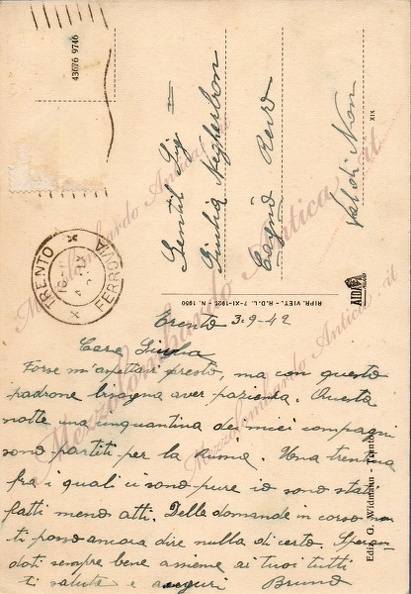 43676 9746
Gentil Sig.
Giulia Negherbon
Cagnò Revò
Val di Non
XIX
TRENTO
FERROVIA
RIPR. VIET. - R.D.L. 7-XI-1925 - N. 1950
Ediz. G. Widmann - Trento
Trento 3-9-42
Cara Giulia
Forse m'aspettavi presto, ma con questo
padrone bisogna aver pazienza. Questa
notte una cinquantina dei miei compagni
sono partiti per la Russia. Una trentina
fra i quali ci sono pure io sono stati
fatti meno atti. Della domande in corso non
ti posso ancora dire nulla di certo. Speran
doti sempre bene assieme ai tuoi tutti
ti saluto e auguri Bruno
Mezzolombardo Antica .it
Mezzolombardo Antica .it
Mezzolombardo Antica .it